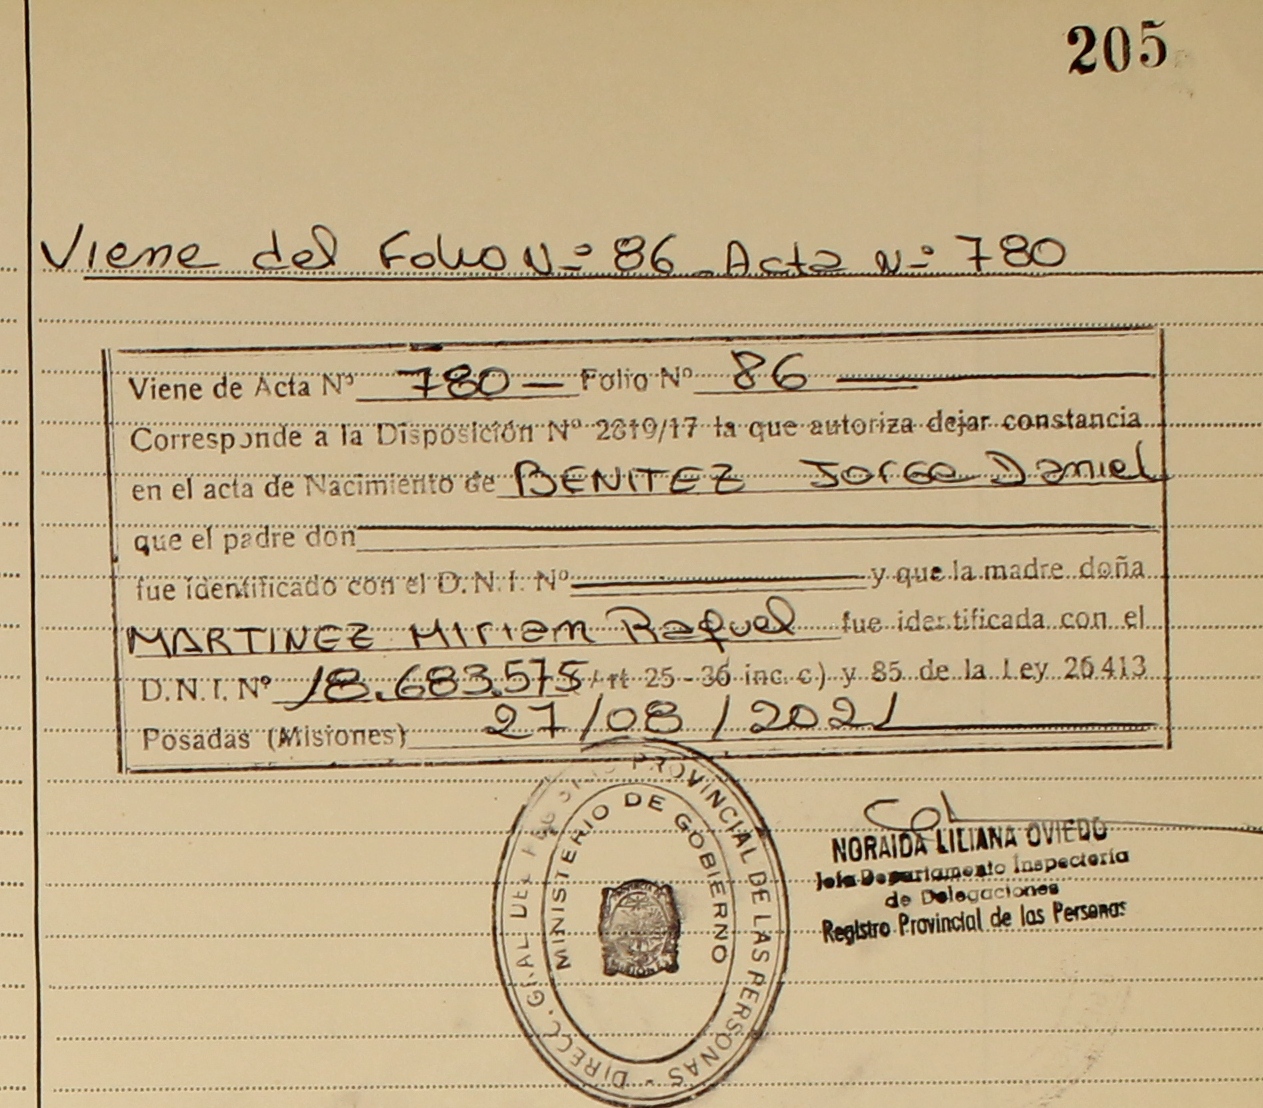 205
Viene del Folio N° 86. Acta N° 780
Viene de Acta N° 780 — Folio N° 86
Corresponde a la Disposición N° 2819/17 la que autoriza dejar constancia
en el acta de Nacimiento de BENITEZ Jorge Daniel
que el padre don
fue identificado con el D.N.I. N° y que la madre doña
MARTINEZ Miriam Raquel fue identificada con el
D.N.I. N° 18.683.575 Art 25 - 36 inc. c) y 85 de la Ley 26413
Posadas (Misiones) 27/08/2021
DIRECC. GRAL DEL REGISTRO PROVINCIAL DE LAS PERSONAS -
MINISTERIO DE GOBIERNO
NORAIDA LILIANA OVIEDO
Jefa Departamento Inspectoría
de Delegaciones
Registro Provincial de las Personas